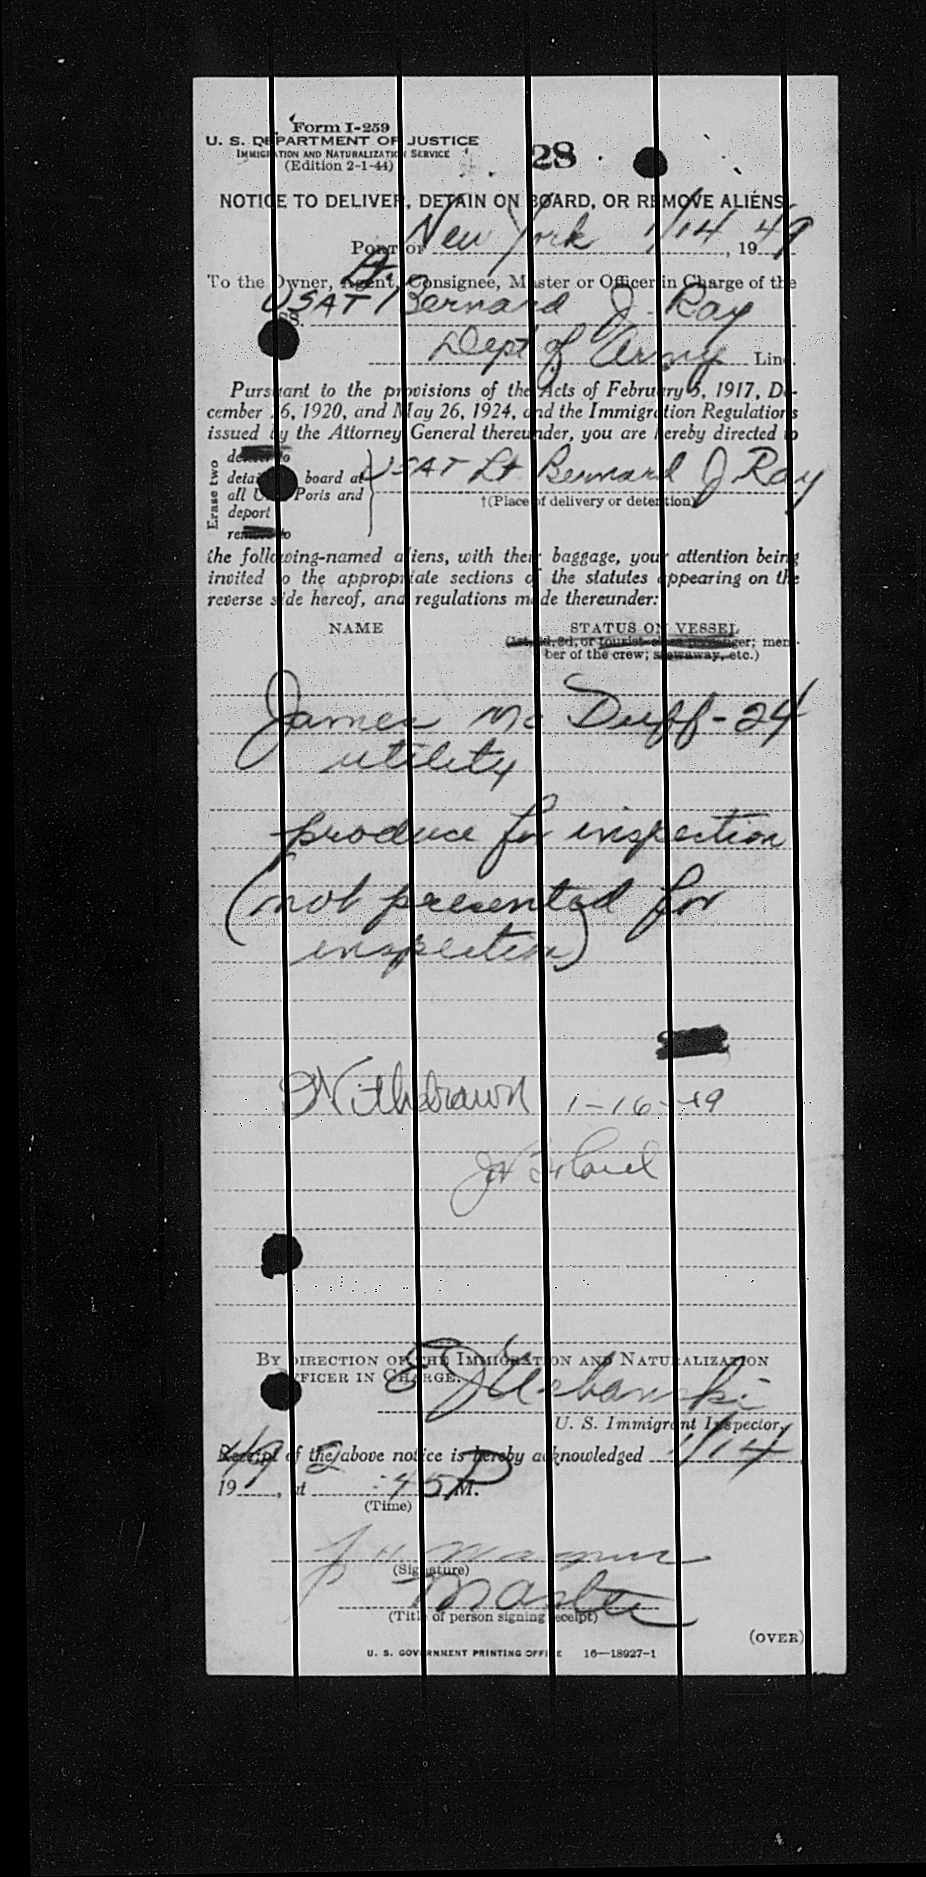 Form I-259
U. S. DEPARTMENT OF JUSTICE
IMMIGRATION AND NATURALIZATION SERVICE
(Edition 2-1-44)
28
NOTICE TO DELIVER, DETAIN ON BOARD, OR REMOVE ALIENS
Port of New York 1/14, 1949
To the Owner, Agent, Consignee, Master or Officer in Charge of the
SS. USAT Lt. Bernard J. Ray
Dept of Army Line.
Pursuant to the provisions of the Acts of February 5, 1917, De-
cember 26, 1920, and May 26, 1924, and the Immigration Regulations
issued by the Attorney General thereunder, you are hereby directed to
Erase two
deliver to
detain on board at
all U.S. Ports and
deport
remove to
USAT Lt Bernard J Ray
†(Place of delivery or detention)
the following-named aliens, with their baggage, your attention being
invited to the appropriate sections of the statutes appearing on the
reverse side hereof, and regulations made thereunder:
NAME STATUS ON VESSEL
(1st, 2d, 3d, or tourist-class passenger; mem-
ber of the crew; stowaway, etc.)
James Mc Duff - 24
utility
produce for inspection
(not presented for
inspection)
Withdrawn 1-16-49
BY DIRECTION OF THE IMMIGRATION AND NATURALIZATION
OFFICER IN CHARGE.
E J Urbanski
U. S. Immigrant Inspector.
Receipt of the above notice is hereby acknowledged 1/14
1949, at 2:45 P M.
(Time)
(Signature)
Master
(Title of person signing receipt)
(OVER)
U. S. GOVERNMENT PRINTING OFFICE 16—18927-1